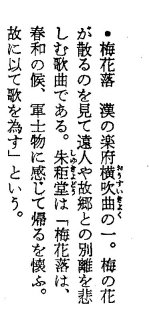 •梅花落　漢の楽府横吹曲の一。梅の花
が散るのを見て遠人や故郷との別離を悲
しむ歌曲である。朱秬堂は「梅花落は、
春和の候、軍士物に感じて帰るを懐ふ。
故に以て歌を為す」という。